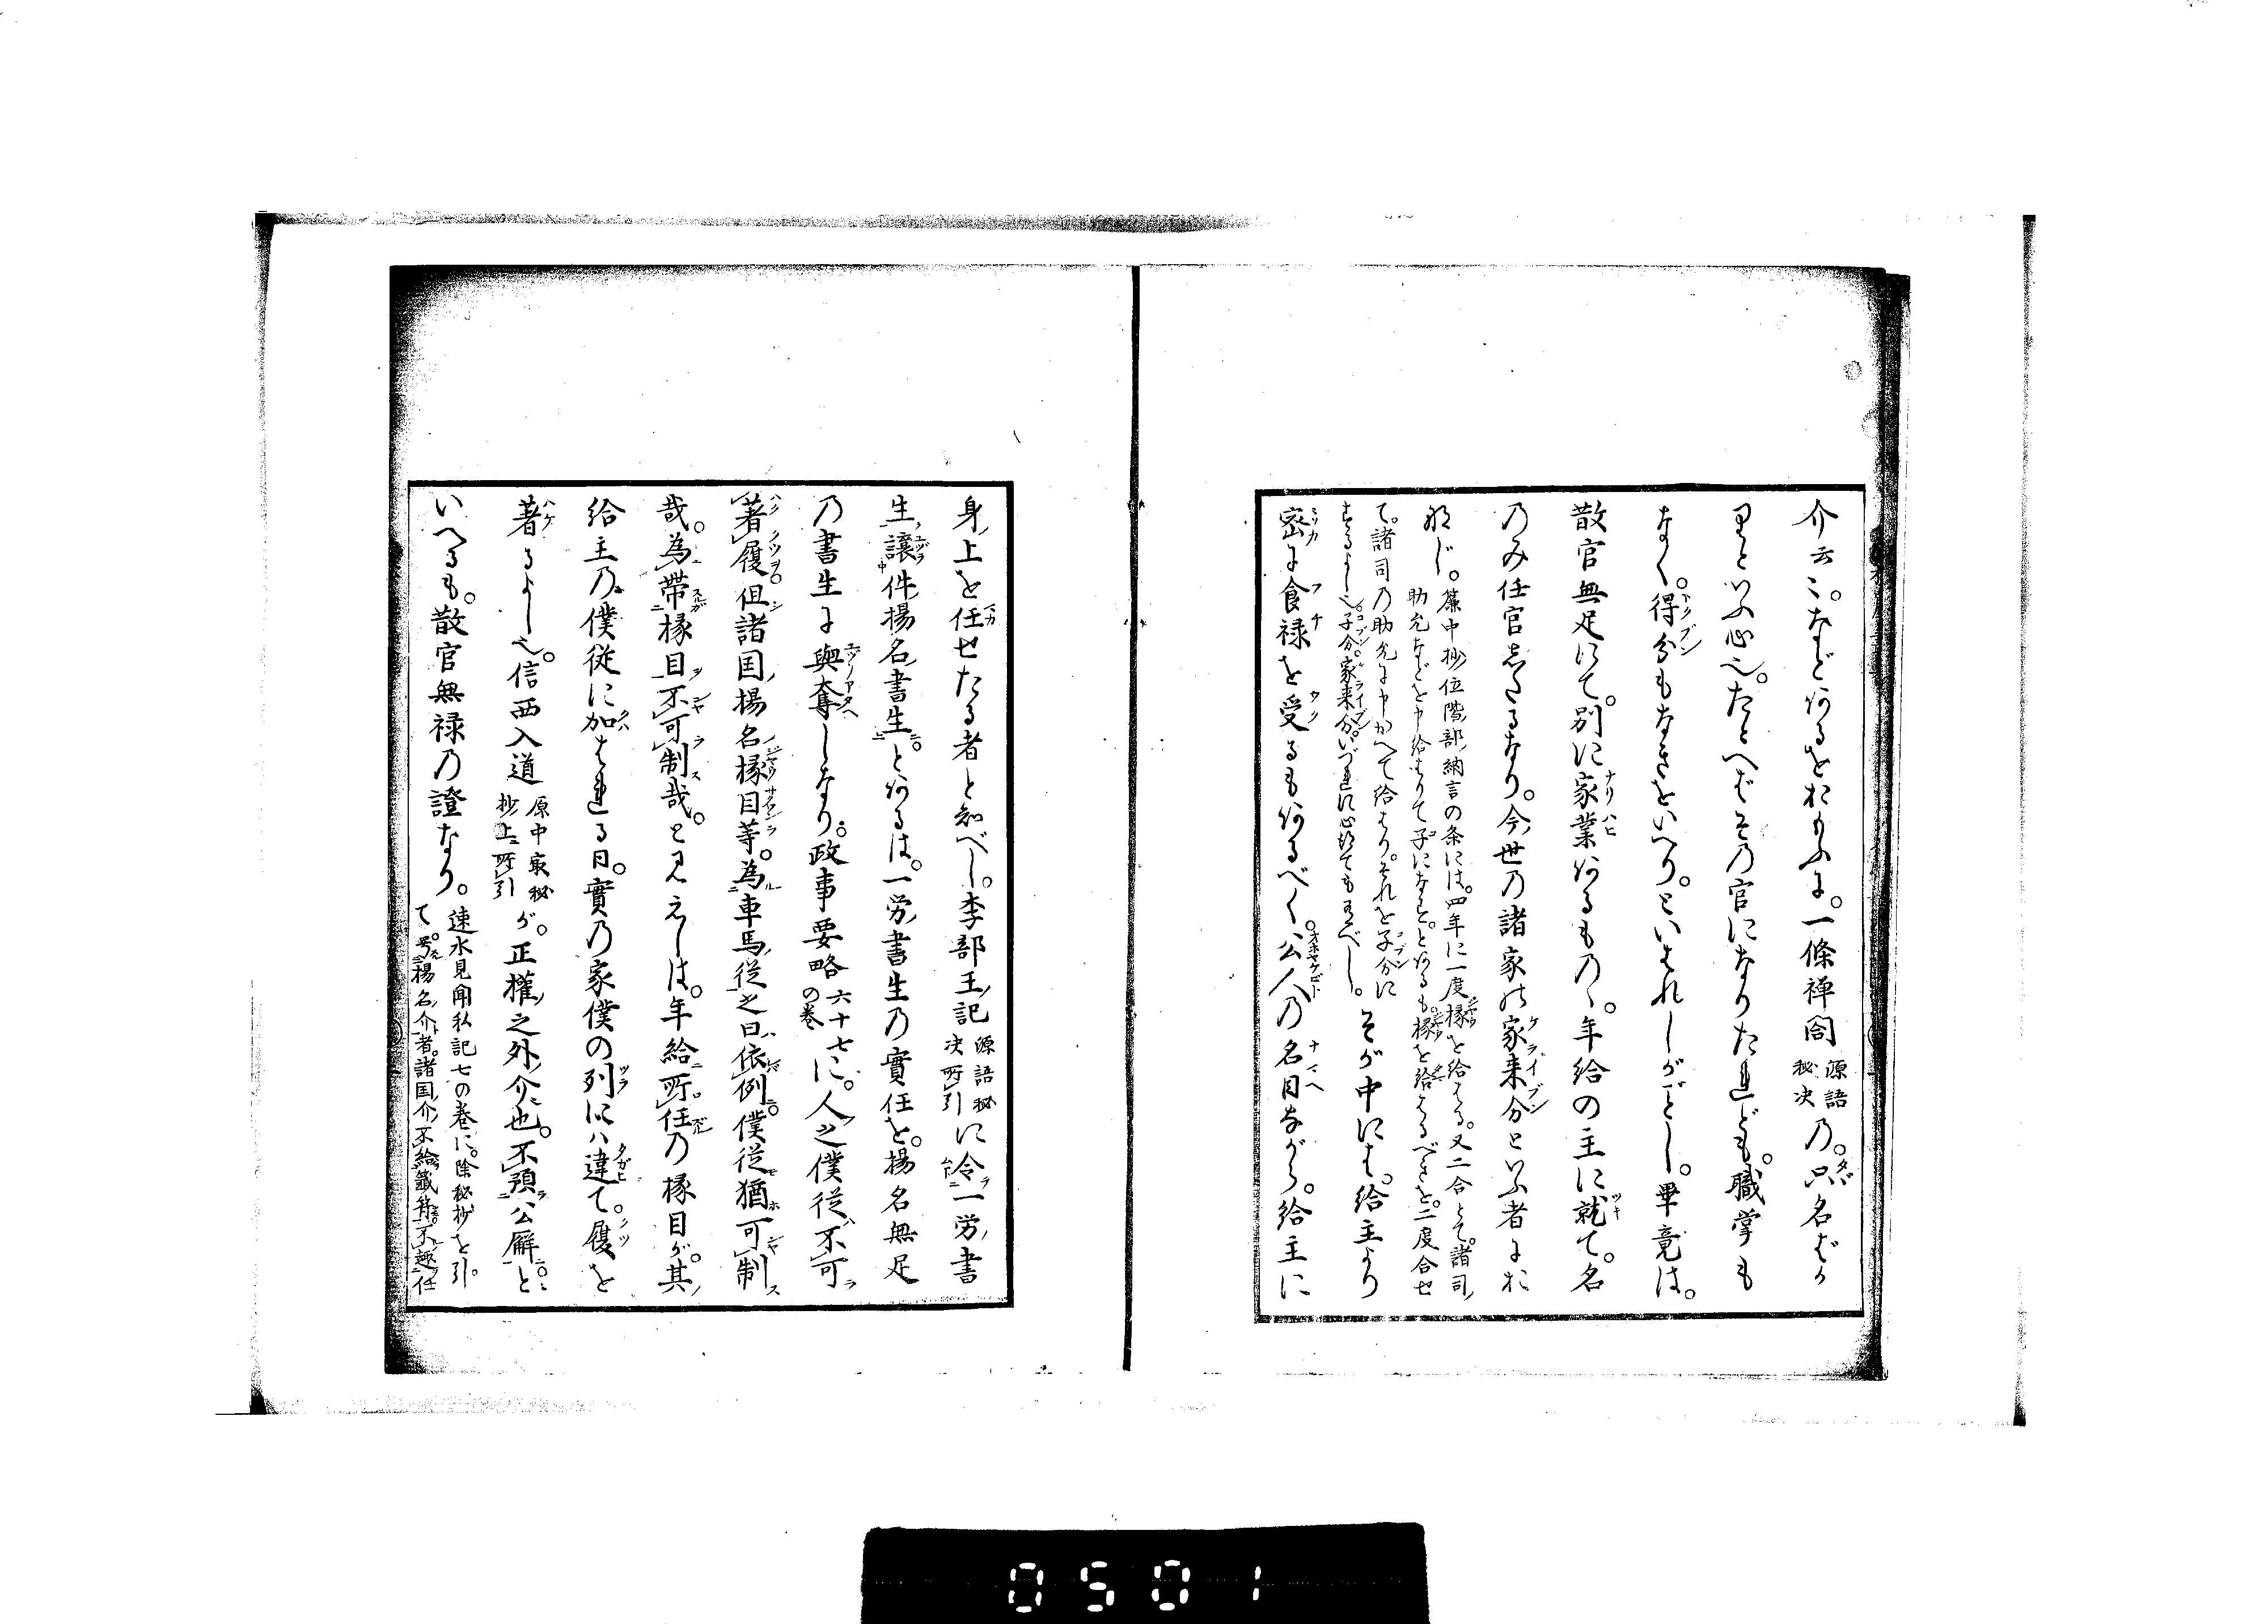 介云〻。などあるをおもふに。一條禅閤 源語秘决 乃。只名ばか
りといふ心也。たとへばその官になりたれども。職掌も
なく。得分もなきをいへり。といはれしがごとし。畢竟は。
散官無足にて。別に家業あるもの丶。年給の主に就て。名
のみ任官したるなり。今世乃諸家の家来分といふ者にお
なじ。簾中抄位階部納言の条には。四年に一度掾を給はる。又二合とて。諸司ノ
助允などを申給はりて子になす。とあるも。掾を給はるべきを。二度合せ
て。諸司乃助允に申かへて給はり。それを子分に
するよし也。子分。家来分。いづれに心得てもすべし。そが中には。給主より
密に食禄を受るもあるべく。公人乃名目ながら。給主に
身上を任せたる者と知べし。李部王記 源語秘决所引 に令一労書
生譲件揚名書生。とあるは。一労書生乃實任を。揚名無足
乃書生に與奪しなり。政事要略 六十七の巻 に。人之僕従不可
著履。但諸国揚名掾目等。為車馬従之日。依例僕従猶可制
哉。為帯掾目不可制哉。と見えしは。年給所任乃掾目が。其
給主乃僕従に加はれる日。實乃家僕の列にハ違て。履を
著るよし也。信西入道 原中最秘抄上所引 が。正權之外介也。不預公廨。と
いへるも。散官無禄乃證なり。速水見聞私記七の巻に。除秘抄を引。
て。号揚名介者。諸国介不給籤符不趣任
0501